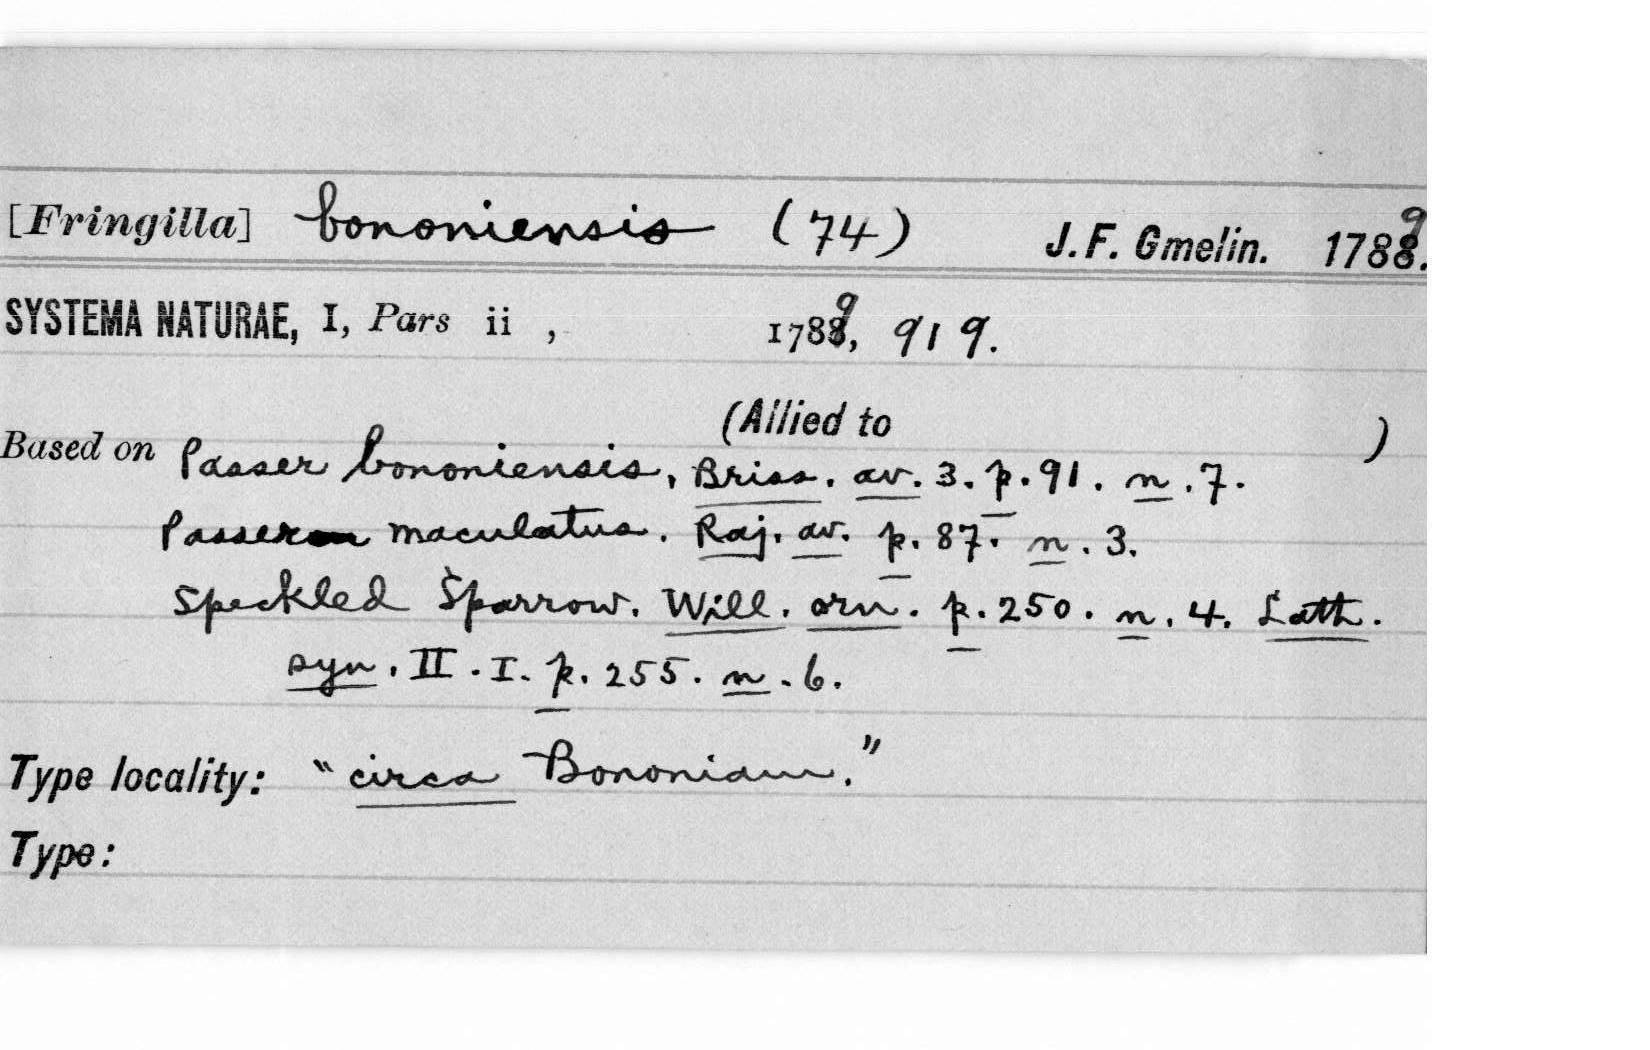 [Fringilla] bononiensis (74) J. F. Gmelin. 1789.
SYSTEMA NATURAE, I, Pars ii , 1789, 919.
(Allied to )
Based on Passer bononiensis, Briss. av. 3. p. 91. n. 7.
Passer maculatus. Raj. av. p. 87. n. 3.
Speckled Sparrow. Will. orn. p. 250. n. 4. Lath.
syn. II. I. p. 255. n. 6.
Type locality: "circa Bononiam."
Type: